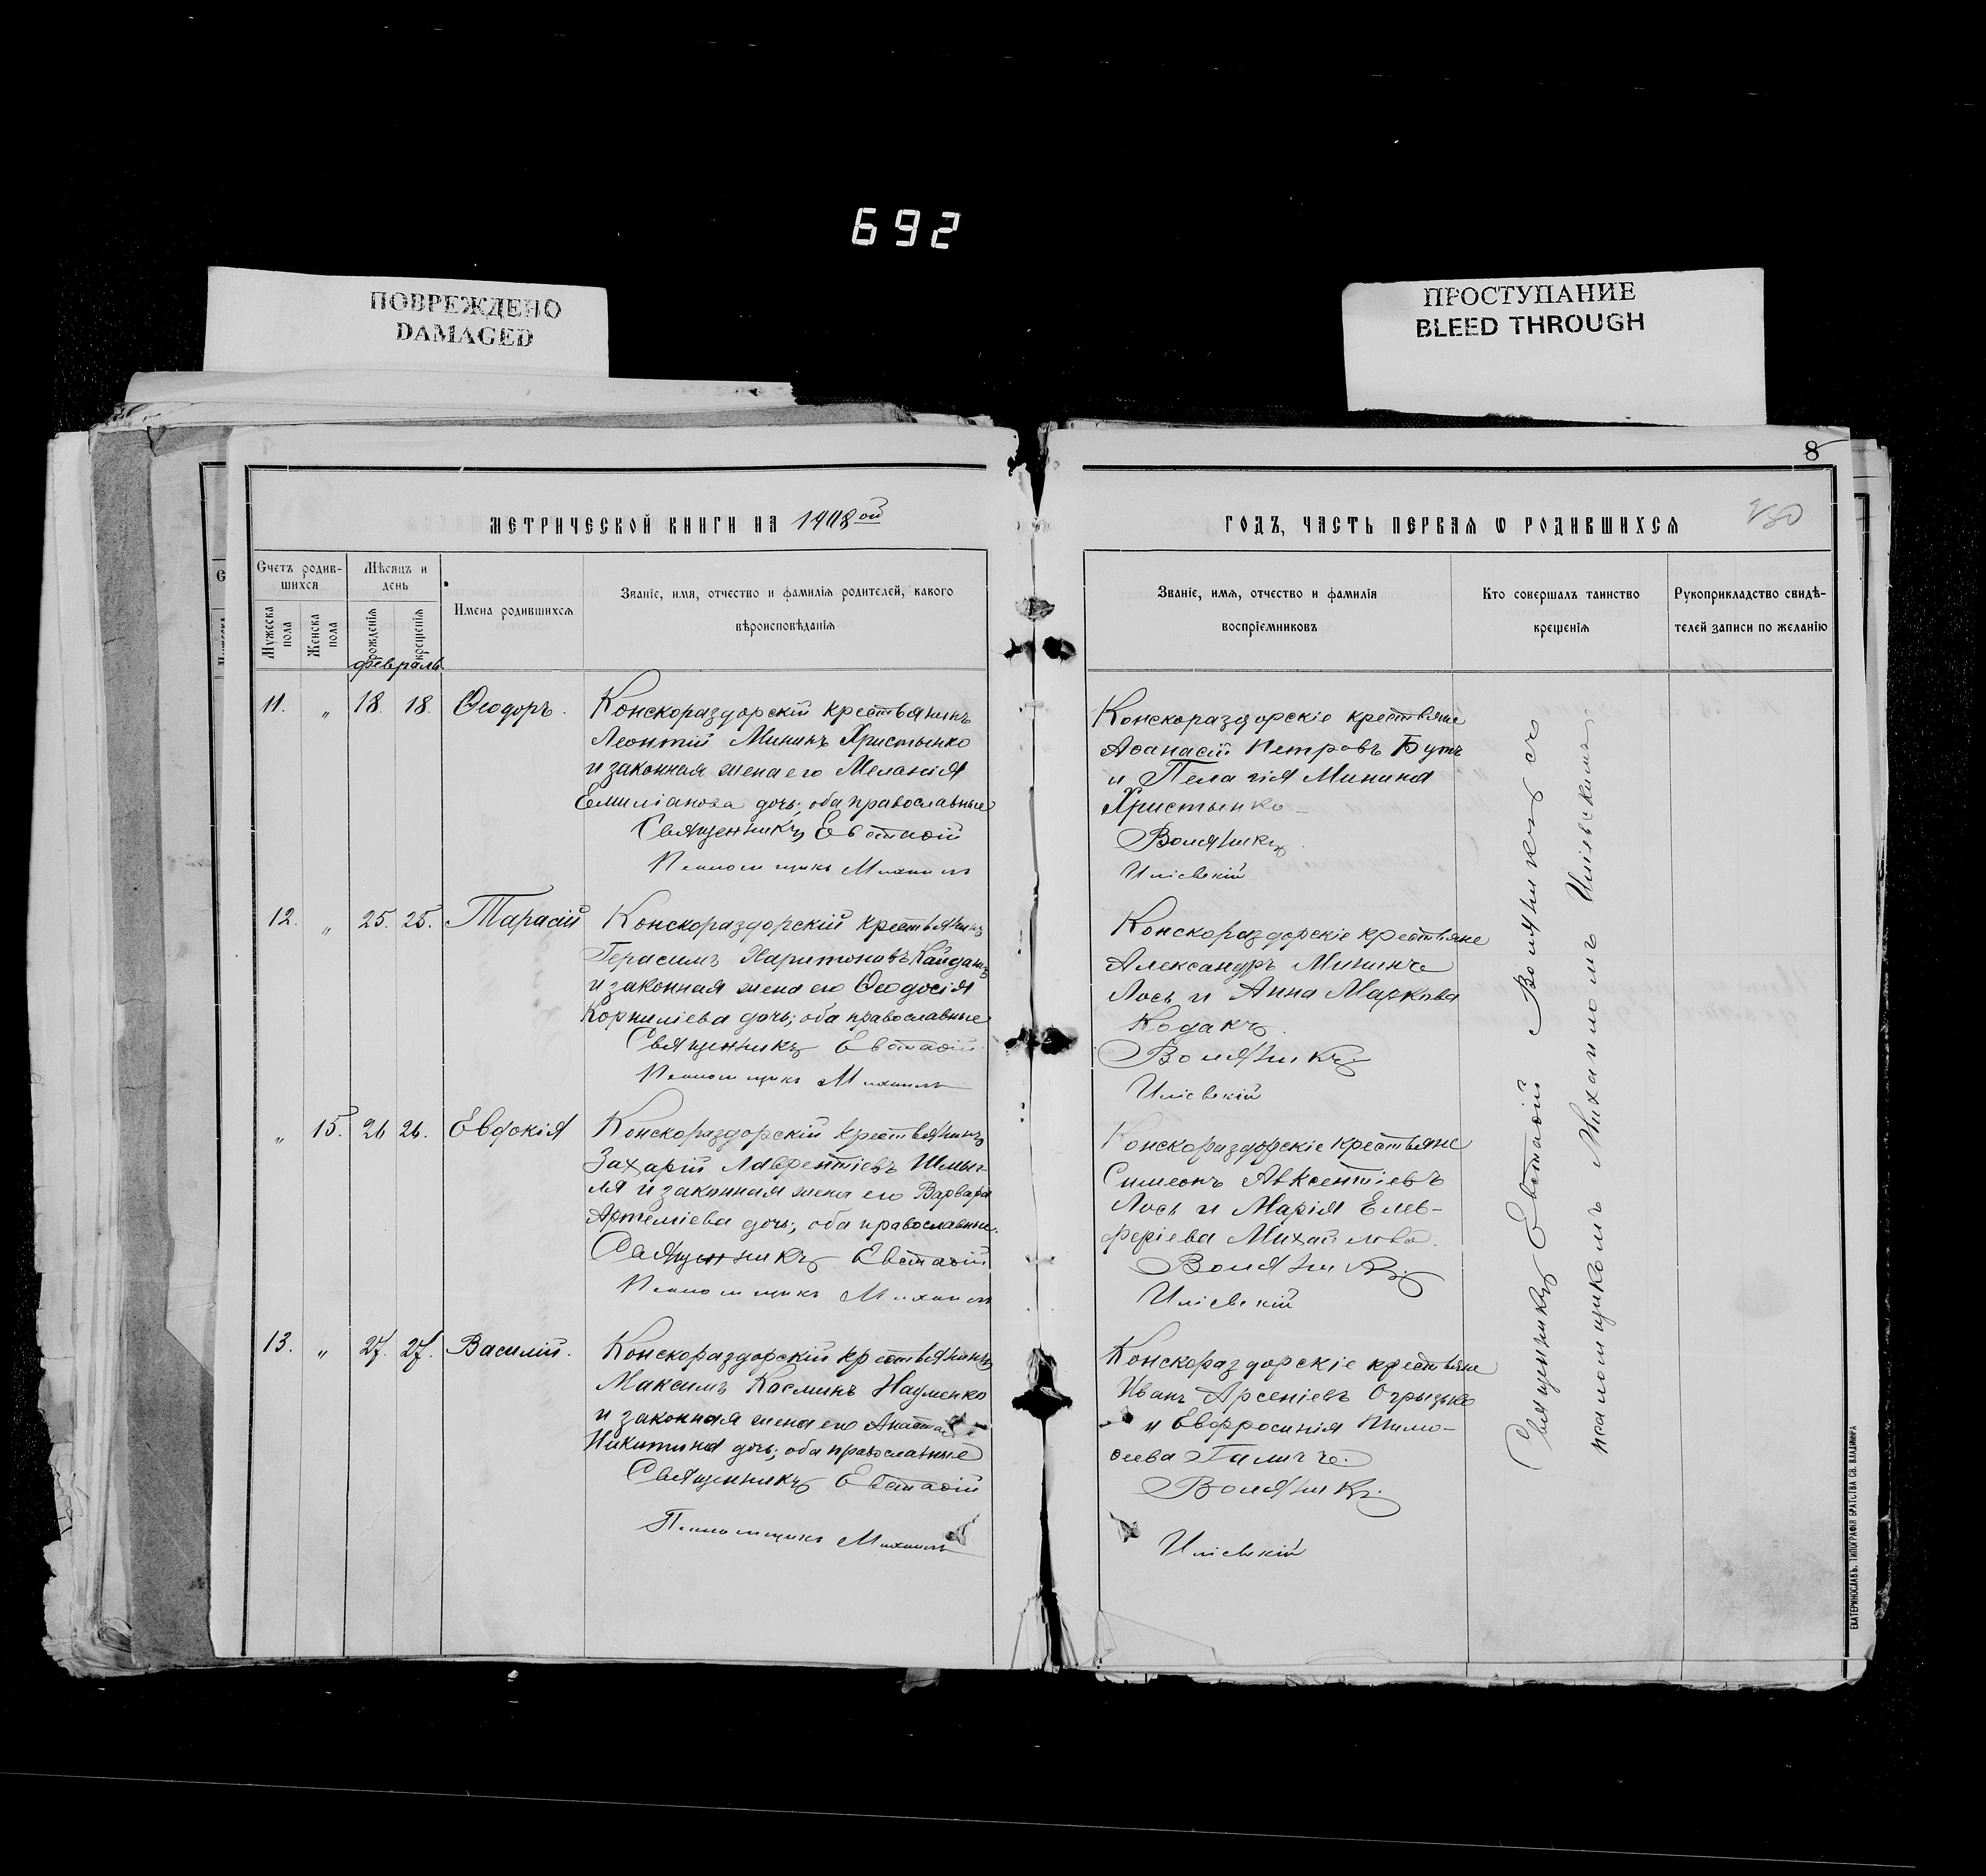 692
ПОВРЕЖДЕНО
DAMAGED
ПРОСТУПАНИЕ
BLEED THROUGH
8
МЕТРИЧЕСКОЙ КНИГИ НА 1908 ой
Счетъ родив-
шихся
Мѣсяцъ и
день
Мужеска
пола
Женска
пола
рожденія
крещенія
Имена родившихся
Званіе, имя, отчество и фамилія родителей, какого
вѣроисповѣданія
февраль
11. „ 18. 18. Ѳеодоръ.
Конскораздорскій крестьянинъ
Леонтій Мининъ Христенко
и законная жена его Меланія
Емиліанова дочь; оба православные
Священникъ Евстаѳій
Псаломщикъ Михаилъ
12. „ 25. 25. Тарасій
Конскораздорскій крестьянинъ
Герасимъ Харитоновъ Кайдашъ
и законная жена его Ѳеодосія
Корниліева дочь; оба православные
Священникъ Евстаѳій
Псаломщикъ Михаилъ
„ 15. 26 26. Евдокія
Конскораздорскій крестьянинъ
Захарій Лаврентіевъ
и законная жена его Варвара
Артеміева дочь; оба православные.
Священникъ Евстаѳій
Псаломщикъ Михаилъ
13. „ 27. 27. Василій.
Конскораздорскій крестьянинъ
Максимъ Косминъ Науменко
и законная жена его
Никитина дочь; оба православные
Священникъ Евстаѳій
Псаломщикъ Михаилъ
ГОДЪ, ЧАСТЬ ПЕРВАЯ Ѡ РОДИВШИХСЯ
Званіе, имя, отчество и фамилія
воспріемниковъ
Кто совершалъ таинство
крещенія
Рукоприкладство свидѣ-
телей записи по желанію
Конскораздорскіе крестьяне
Аѳанасій Петровъ Бутъ
и Пелагія Минина
Христенко
Воляникъ
Иліевскій
Конскораздорскіе крестьяне
Александръ Мининъ
Лось и Анна Маркова
Кодакъ.
Воляникъ
Иліевскій
Конскораздорскіе крестьяне
Симеонъ Авксентіевъ
Лось и Марія Елев-
феріева Михайлова.
Воляникъ
Иліевскій
Конскораздорскіе крестьяне
Иванъ Арсеніевъ Огрызко
и Евфросинія Тимо-
ѳеева
Воляникъ.
Иліевскій
Священникъ Евстаѳій Воляникъ съ
псаломщикомъ Михаиломъ Иліевскимъ.
ЕКАТЕРИНОСЛАВЪ. ТИПОГРАФІЯ БРАТСТВА СВ. ВЛАДИМІРА